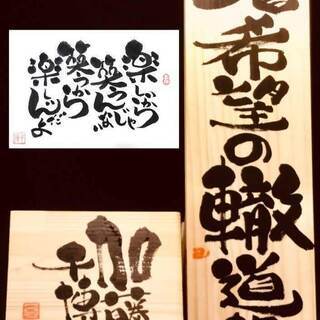 楽しいから
笑うんじゃない
笑うから
楽しいんだよ
希望の轍道
加藤
千博